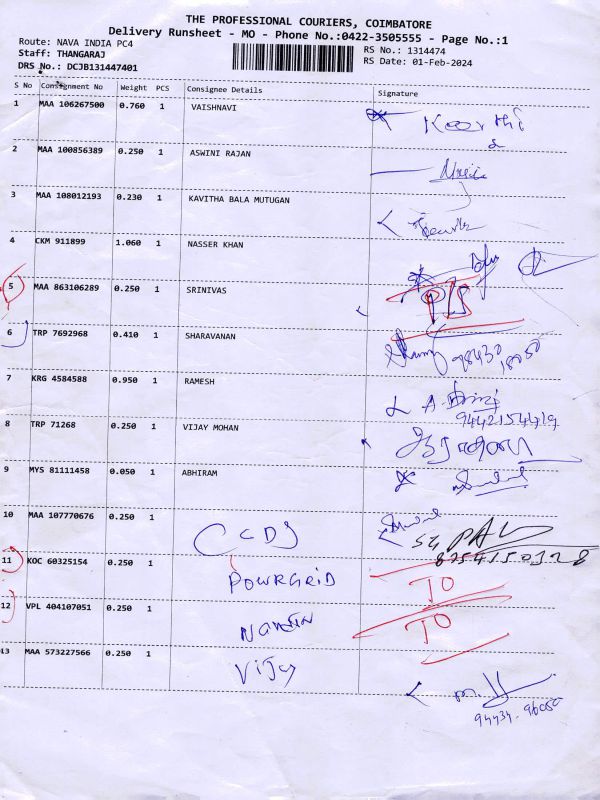 THE PROFESSIONAL COURIERS, COIMBATORE
Delivery Runsheet - MO - Phone No.:0422-3505555 - Page No.:1
Route: NAVA INDIA PC4 RS No.: 1314474
Staff: THANGARAJ RS Date: 01-Feb-2024
DRS No.: DCJB131447401
S No Consignment No Weight PCS Consignee Details Signature
1 MAA 106267500 0.760 1 VAISHNAVI
2 MAA 100856389 0.250 1 ASWINI RAJAN
3 MAA 108012193 0.230 1 KAVITHA BALA MUTUGAN
4 CKM 911899 1.060 1 NASSER KHAN
5 MAA 863106289 0.250 1 SRINIVAS P/S
6 TRP 7692968 0.410 1 SHARAVANAN 98430 18050
7 KRG 4584588 0.950 1 RAMESH
9442154419
8 TRP 71268 0.250 1 VIJAY MOHAN
9 MYS 81111458 0.050 1 ABHIRAM
10 MAA 107770676 0.250 1 CCDS
8754150328
11 KOC 60325154 0.250 1 POWRGRID TO
12 VPL 404107051 0.250 1 TO
13 MAA 573227566 0.250 1 Vijay